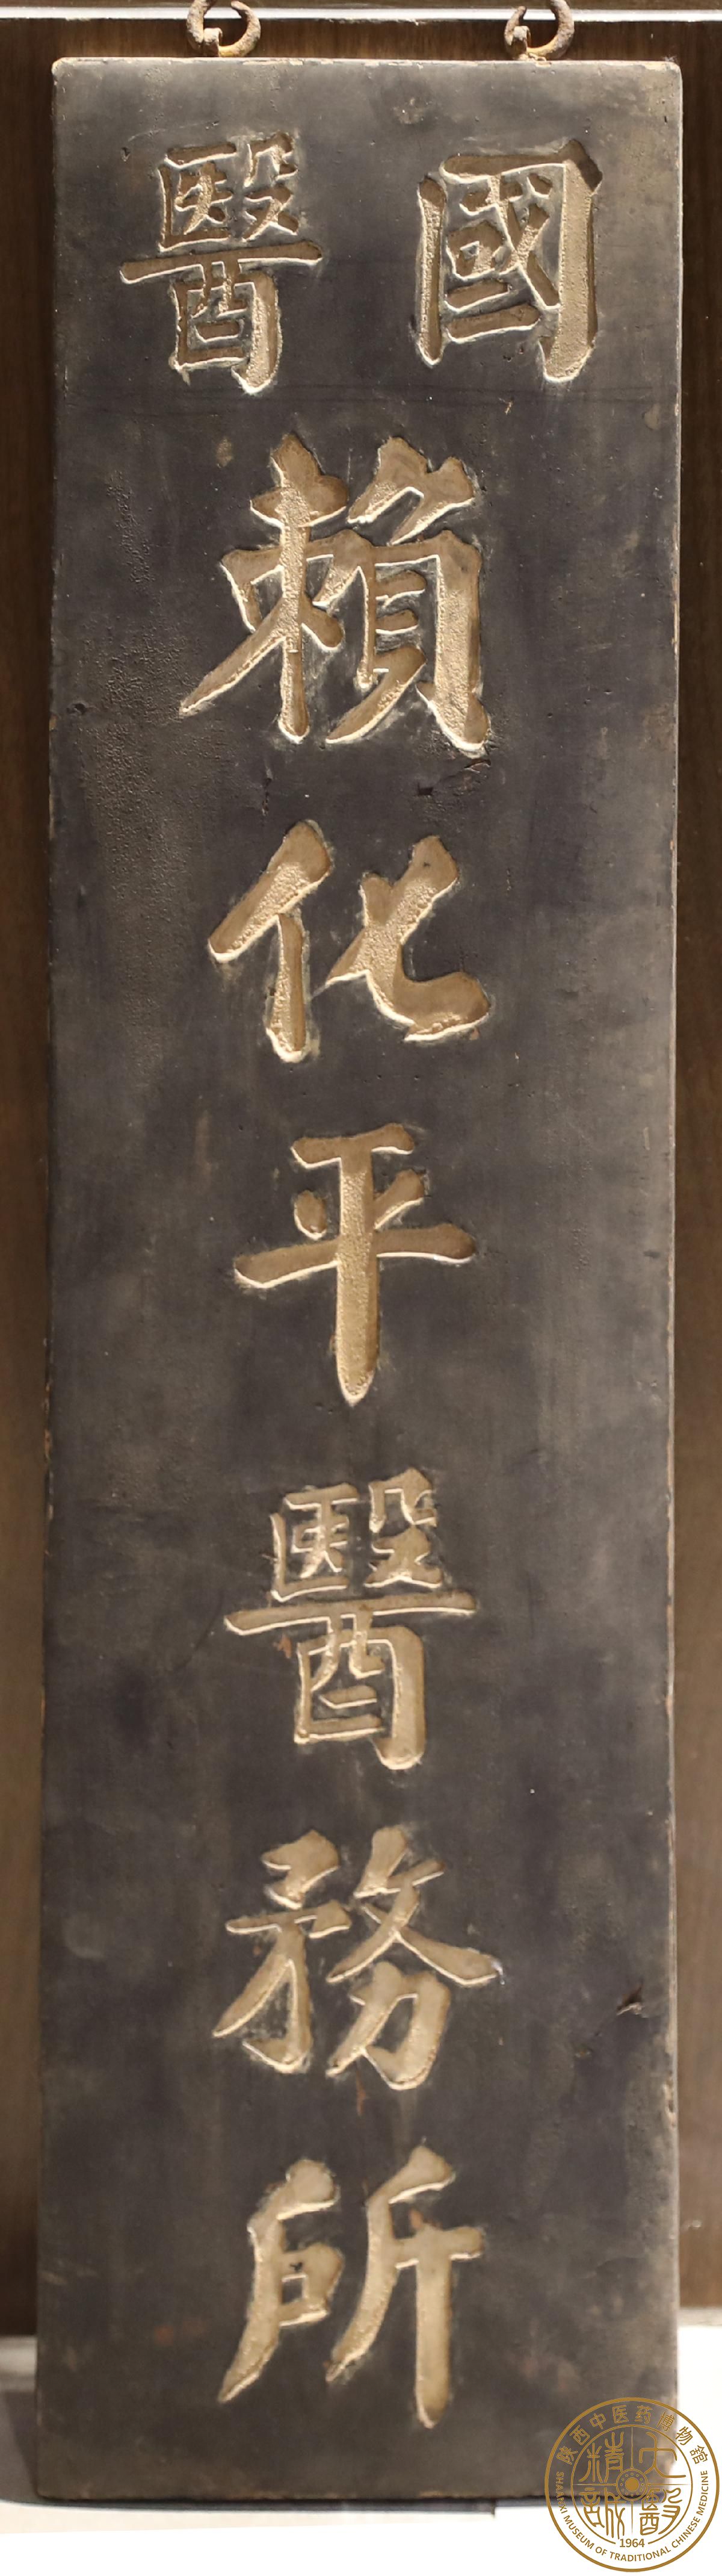 國醫
賴化平醫務所
陕西中医药博物馆
大醫精誠
1964
SHAANXI MUSEUM OF TRADITIONAL CHINESE MEDICINE